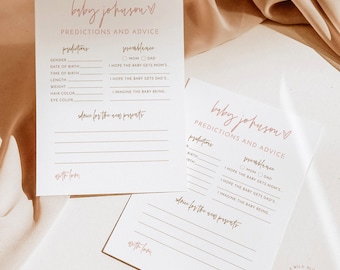 baby johnson
PREDICTIONS AND ADVICE
predictions
GENDER
DATE OF BIRTH
TIME OF BIRTH
LENGTH
WEIGHT
HAIR COLOR
EYE COLOR
resemblance
MOM DAD
I HOPE THE BABY GETS MOM'S..
I HOPE THE BABY GETS DAD'S..
I IMAGINE THE BABY BEING..
advice for the new parents
with love,
baby johnson
PREDICTIONS AND ADVICE
predictions
GENDER
DATE OF BIRTH
TIME OF BIRTH
LENGTH
WEIGHT
HAIR COLOR
EYE COLOR
resemblance
MOM DAD
I HOPE THE BABY GETS MOM'S..
I HOPE THE BABY GETS DAD'S..
I IMAGINE THE BABY BEING..
advice for the new parents
with love,